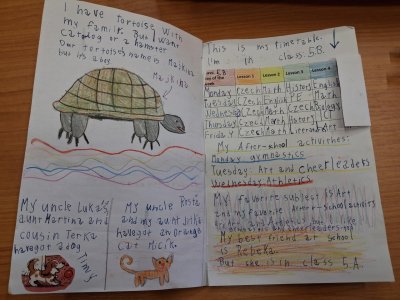 I have Tortoise With
my family. But I want
Cat, dog or a hamster
Our tortoise's name is Majkina
but it's a boy.
Majkina
My uncle Lukáš
aunt Martina and
cousin Terka
havegot a dog
Timy
My uncle Rosťa
and my aunt Jitka
havegot an orange
cat Micik.
This is my timetable.
I'm in class 5.B.
5.B Lesson 1 Lesson 2 Lesson 3 Lesson 4
Monday Czech Math History English
Czech English P.E. Math
Wednesday Czech Math Czech
Thursday Czech Math History ICT
Friday Czech Math Literature Art
My After-school activities:
Monday: gymnastics
Tuesday: Art and cheerleaders
Wednesday: Athletics
My favorite subject is Art
and my favorite After-school activities
is Art and Athletics but I like
gymnastics and cheerleaders too
My best friend at school
is Rebeka.
But she is in class 5.A.